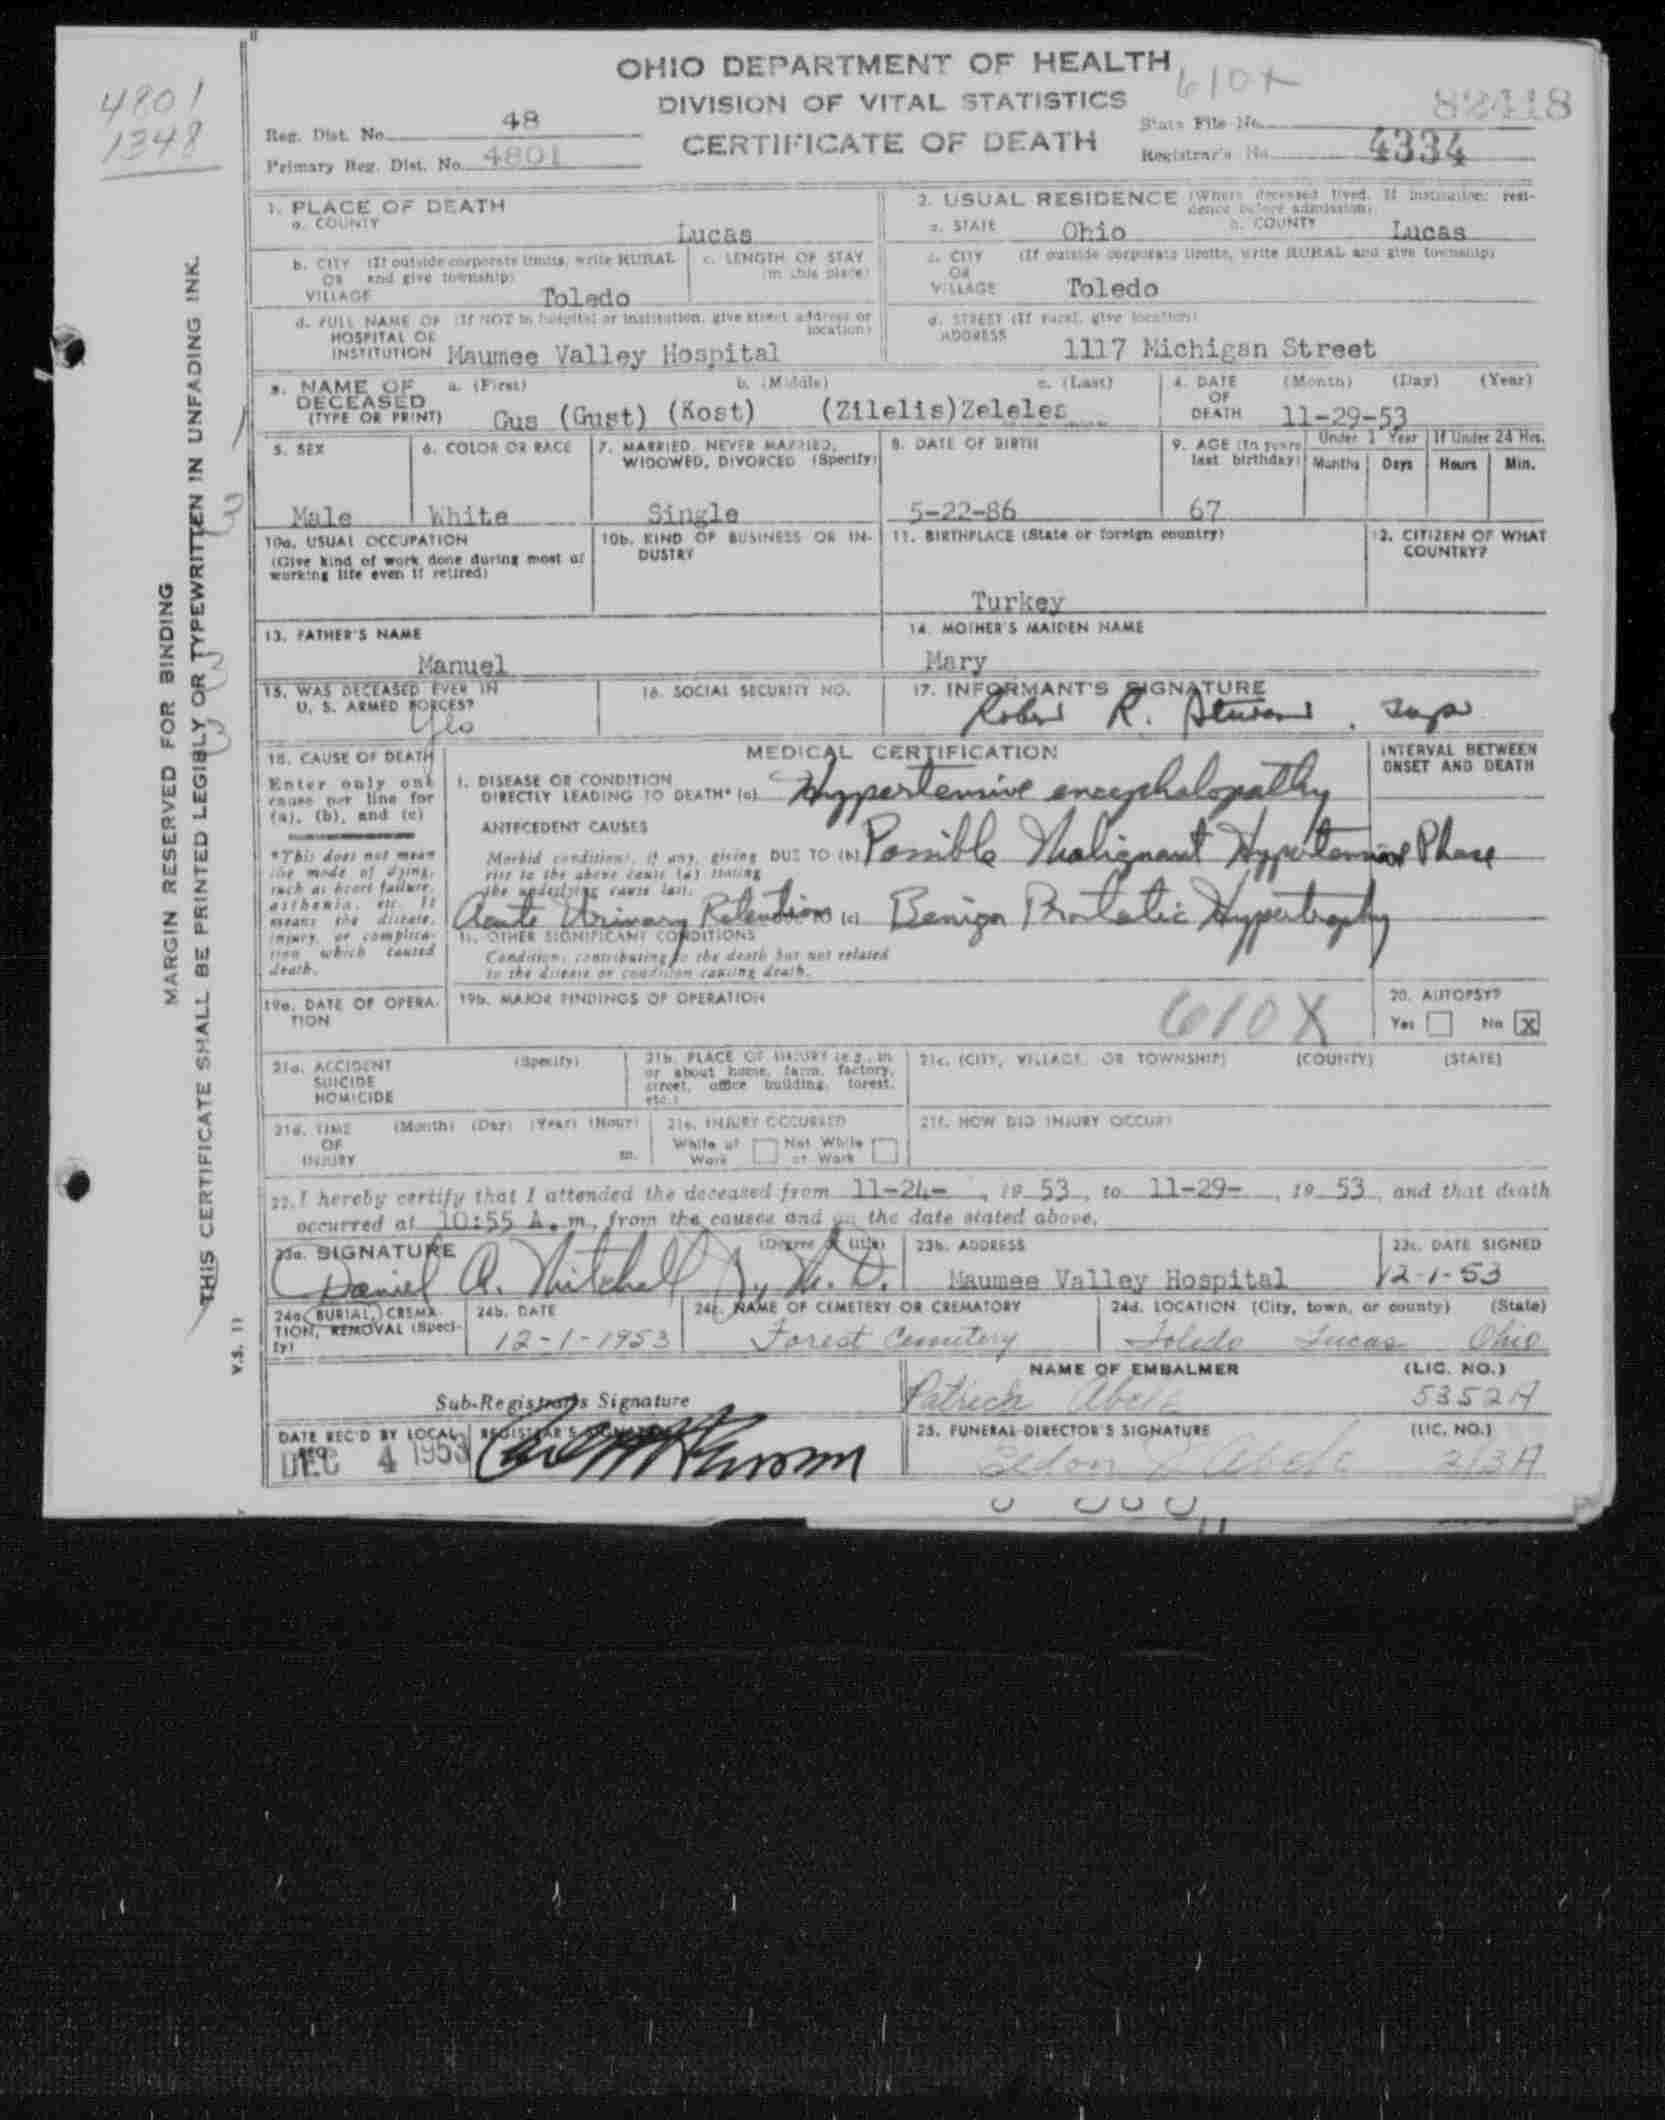 4801
1348
OHIO DEPARTMENT OF HEALTH
DIVISION OF VITAL STATISTICS
CERTIFICATE OF DEATH
610X
Reg. Dist. No. 48
Primary Reg. Dist. No. 4801
State File No.
Registrar's No. 4334
MARGIN RESERVED FOR BINDING
THIS CERTIFICATE SHALL BE PRINTED LEGIBLY OR TYPEWRITTEN IN UNFADING INK.
V.S. 11
1. PLACE OF DEATH
a. COUNTY Lucas
b. CITY (If outside corporate limits, write RURAL
OR and give township)
VILLAGE Toledo
c. LENGTH OF STAY
(in this place)
d. FULL NAME OF (If NOT in hospital or institution, give street address or
HOSPITAL OR location)
INSTITUTION Maumee Valley Hospital
2. USUAL RESIDENCE (Where deceased lived. If institution: resi-
dence before admission)
a. STATE Ohio b. COUNTY Lucas
c. CITY (If outside corporate limits, write RURAL and give township)
OR
VILLAGE Toledo
d. STREET (If rural, give location)
ADDRESS 1117 Michigan Street
3. NAME OF a. (First) b. (Middle) c. (Last)
DECEASED
(TYPE OR PRINT) Gus (Gust) (Kost) (Zilelis) Zeleles
4. DATE (Month) (Day) (Year)
OF
DEATH 11-29-53
5. SEX
Male
6. COLOR OR RACE
White
7. MARRIED, NEVER MARRIED,
WIDOWED, DIVORCED (Specify)
Single
8. DATE OF BIRTH
5-22-86
9. AGE (In years
last birthday)
67
Under 1 Year
Months Days
If Under 24 Hrs.
Hours Min.
10a. USUAL OCCUPATION
(Give kind of work done during most of
working life even if retired)
10b. KIND OF BUSINESS OR IN-
DUSTRY
11. BIRTHPLACE (State or foreign country)
Turkey
12. CITIZEN OF WHAT
COUNTRY?
13. FATHER'S NAME
Manuel
14. MOTHER'S MAIDEN NAME
Mary
15. WAS DECEASED EVER IN
U. S. ARMED FORCES?
Yes
16. SOCIAL SECURITY NO.
17. INFORMANT'S SIGNATURE
Robert R.
18. CAUSE OF DEATH
Enter only one
cause per line for
(a), (b), and (c)
*This does not mean
the mode of dying,
such as heart failure,
asthenia, etc. It
means the disease,
injury, or complica-
tion which caused
death.
MEDICAL CERTIFICATION
INTERVAL BETWEEN
ONSET AND DEATH
I. DISEASE OR CONDITION
DIRECTLY LEADING TO DEATH* (a) Hypertensive encephalopathy
ANTECEDENT CAUSES
Morbid conditions, if any, giving DUE TO (b) Possible Malignant Hypertensive Phase
rise to the above cause (a) stating
the underlying cause last.
Acute Urinary Retention DUE TO (c) Benign Prostatic Hypertrophy
II. OTHER SIGNIFICANT CONDITIONS
Conditions contributing to the death but not related
to the disease or condition causing death.
19a. DATE OF OPERA-
TION
19b. MAJOR FINDINGS OF OPERATION
610X
20. AUTOPSY?
Yes No X
21a. ACCIDENT (Specify)
SUICIDE
HOMICIDE
21b. PLACE OF INJURY (e.g., in
or about home, farm, factory,
street, office building, forest,
etc.)
21c. (CITY, VILLAGE, OR TOWNSHIP) (COUNTY) (STATE)
21d. TIME (Month) (Day) (Year) (Hour)
OF
INJURY m.
21e. INJURY OCCURRED
While at Not While
Work at Work
21f. HOW DID INJURY OCCUR?
22. I hereby certify that I attended the deceased from 11-24-, 19 53, to 11-29-, 19 53, and that death
occurred at 10:55 A. m., from the causes and on the date stated above.
23a. SIGNATURE (Degree or title)
Daniel A. Mitchell Jr., M.D.
23b. ADDRESS
Maumee Valley Hospital
23c. DATE SIGNED
12-1-53
24a. BURIAL, CREMA-
TION, REMOVAL (Speci-
fy)
24b. DATE
12-1-1953
24c. NAME OF CEMETERY OR CREMATORY
Forest Cemetery
24d. LOCATION (City, town, or county) (State)
Toledo Lucas Ohio
Sub-Registrar's Signature
NAME OF EMBALMER (LIC. NO.)
Patrick 5352A
DATE REC'D BY LOCAL
REG.
DEC 4 1953
REGISTRAR'S SIGNATURE
25. FUNERAL DIRECTOR'S SIGNATURE (LIC. NO.)
313A